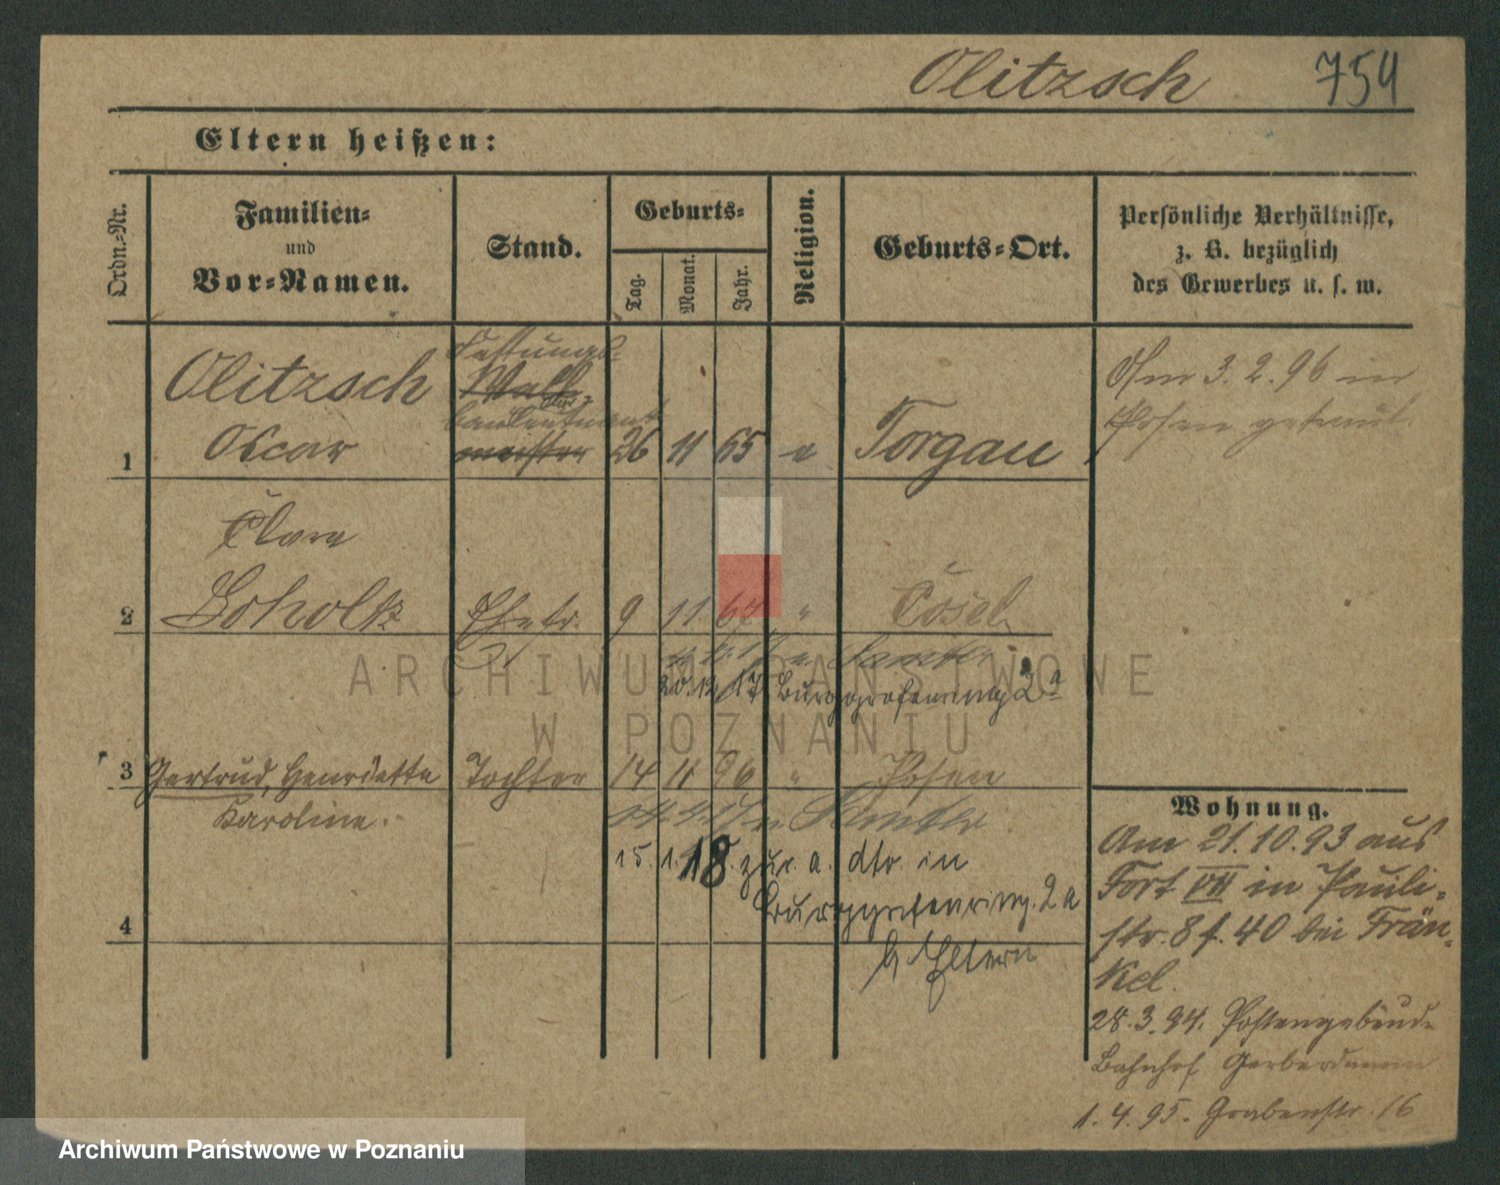 Olitzsch 754
Eltern heißen:
Ordn.=Nr.
Familien=
und
Vor=Namen.
Stand.
Geburts=
Tag.
Monat.
Jahr.
Religion.
Geburts=Ort.
Persönliche Verhältnisse,
z. B. bezüglich
des Gewerbes u. s. w.
Festungs-
Olitzsch Wall-
bauleutnant
1 Oscar meister 26 11 65 e Torgau
Am 3. 2. 96 in
Posen getraut.
Clara
2 Boholtz Ehefr. 9 11. 67 " Cosel
20. 12 17 Burggrafenring 2a
3 Gertrud, Henriette Tochter 14 11 96 " Posen
Karoline.
15. 1. 18. zur. a. dto. in
Burggrafenring. 2a
4
b Eltern
Wohnung.
Am 21. 10. 93 aus
Fort VII in Pauli-
str. 8 f. 40 bei Frän-
kel.
28. 3. 94. Postengebäude
Bahnhof Gerberdamm
1. 4. 95. Grabenstr. 16
ARCHIWUM PAŃSTWOWE
W POZNANIU
Archiwum Państwowe w Poznaniu